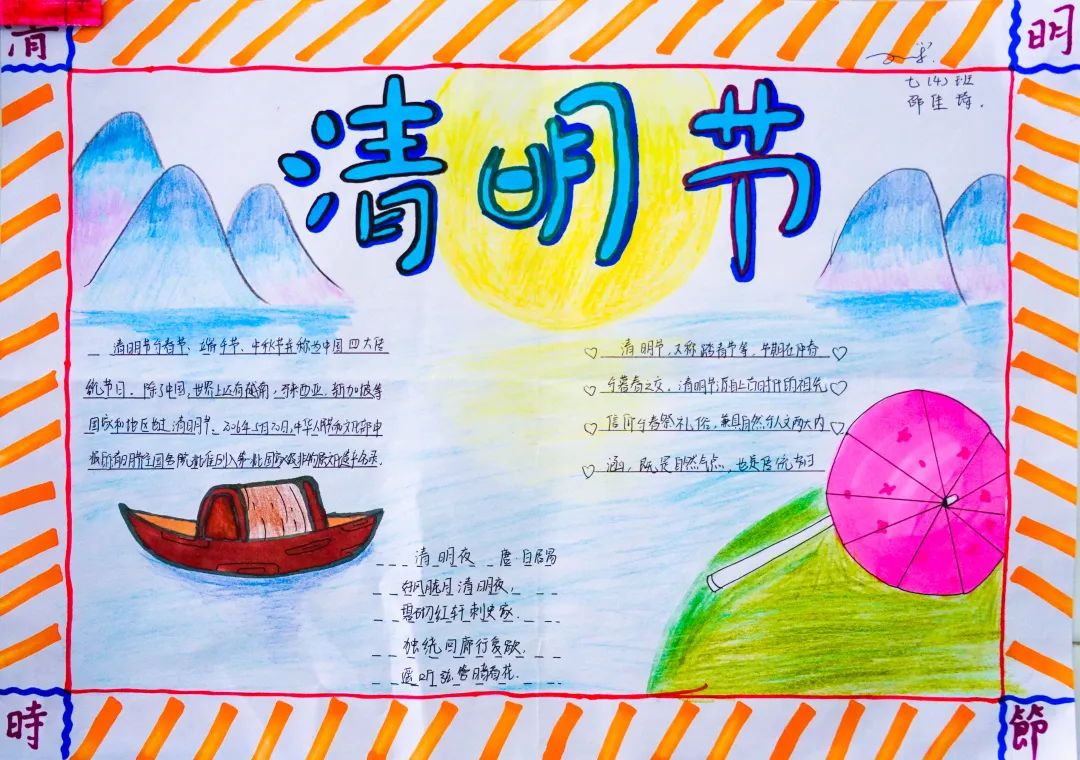 清
明
七(4)班
邵佳琦.
清明节
清明节与春节、端午节、中秋节并称为中国四大传
统节日。除了中国,世界上还有越南、马来西亚、新加坡等
国家和地区也过清明节。2006年5月20日,中华人民和文化部申
报的清明节经国务院批准列入第一批国家级非物质文化遗产名录.
清明节,又称踏青节等,节期在仲春
与暮春之交。清明节源自上古时代的祖先
信仰与春祭礼俗,兼具自然与人文两大内
涵,既是自然节点,也是传统节日
清明夜 唐·白居易
好风胧月清明夜,
碧砌红轩刺史家.
独绕回廊行复歇.
遥听弦管暗看花.
時
節